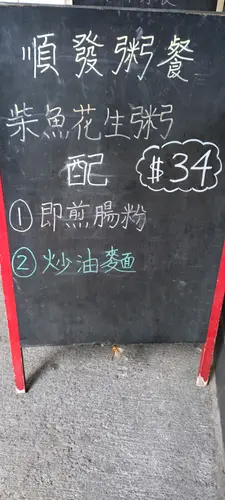 順發粥餐
柴魚花生粥
配 $34
① 即煎腸粉
② 炒油麵